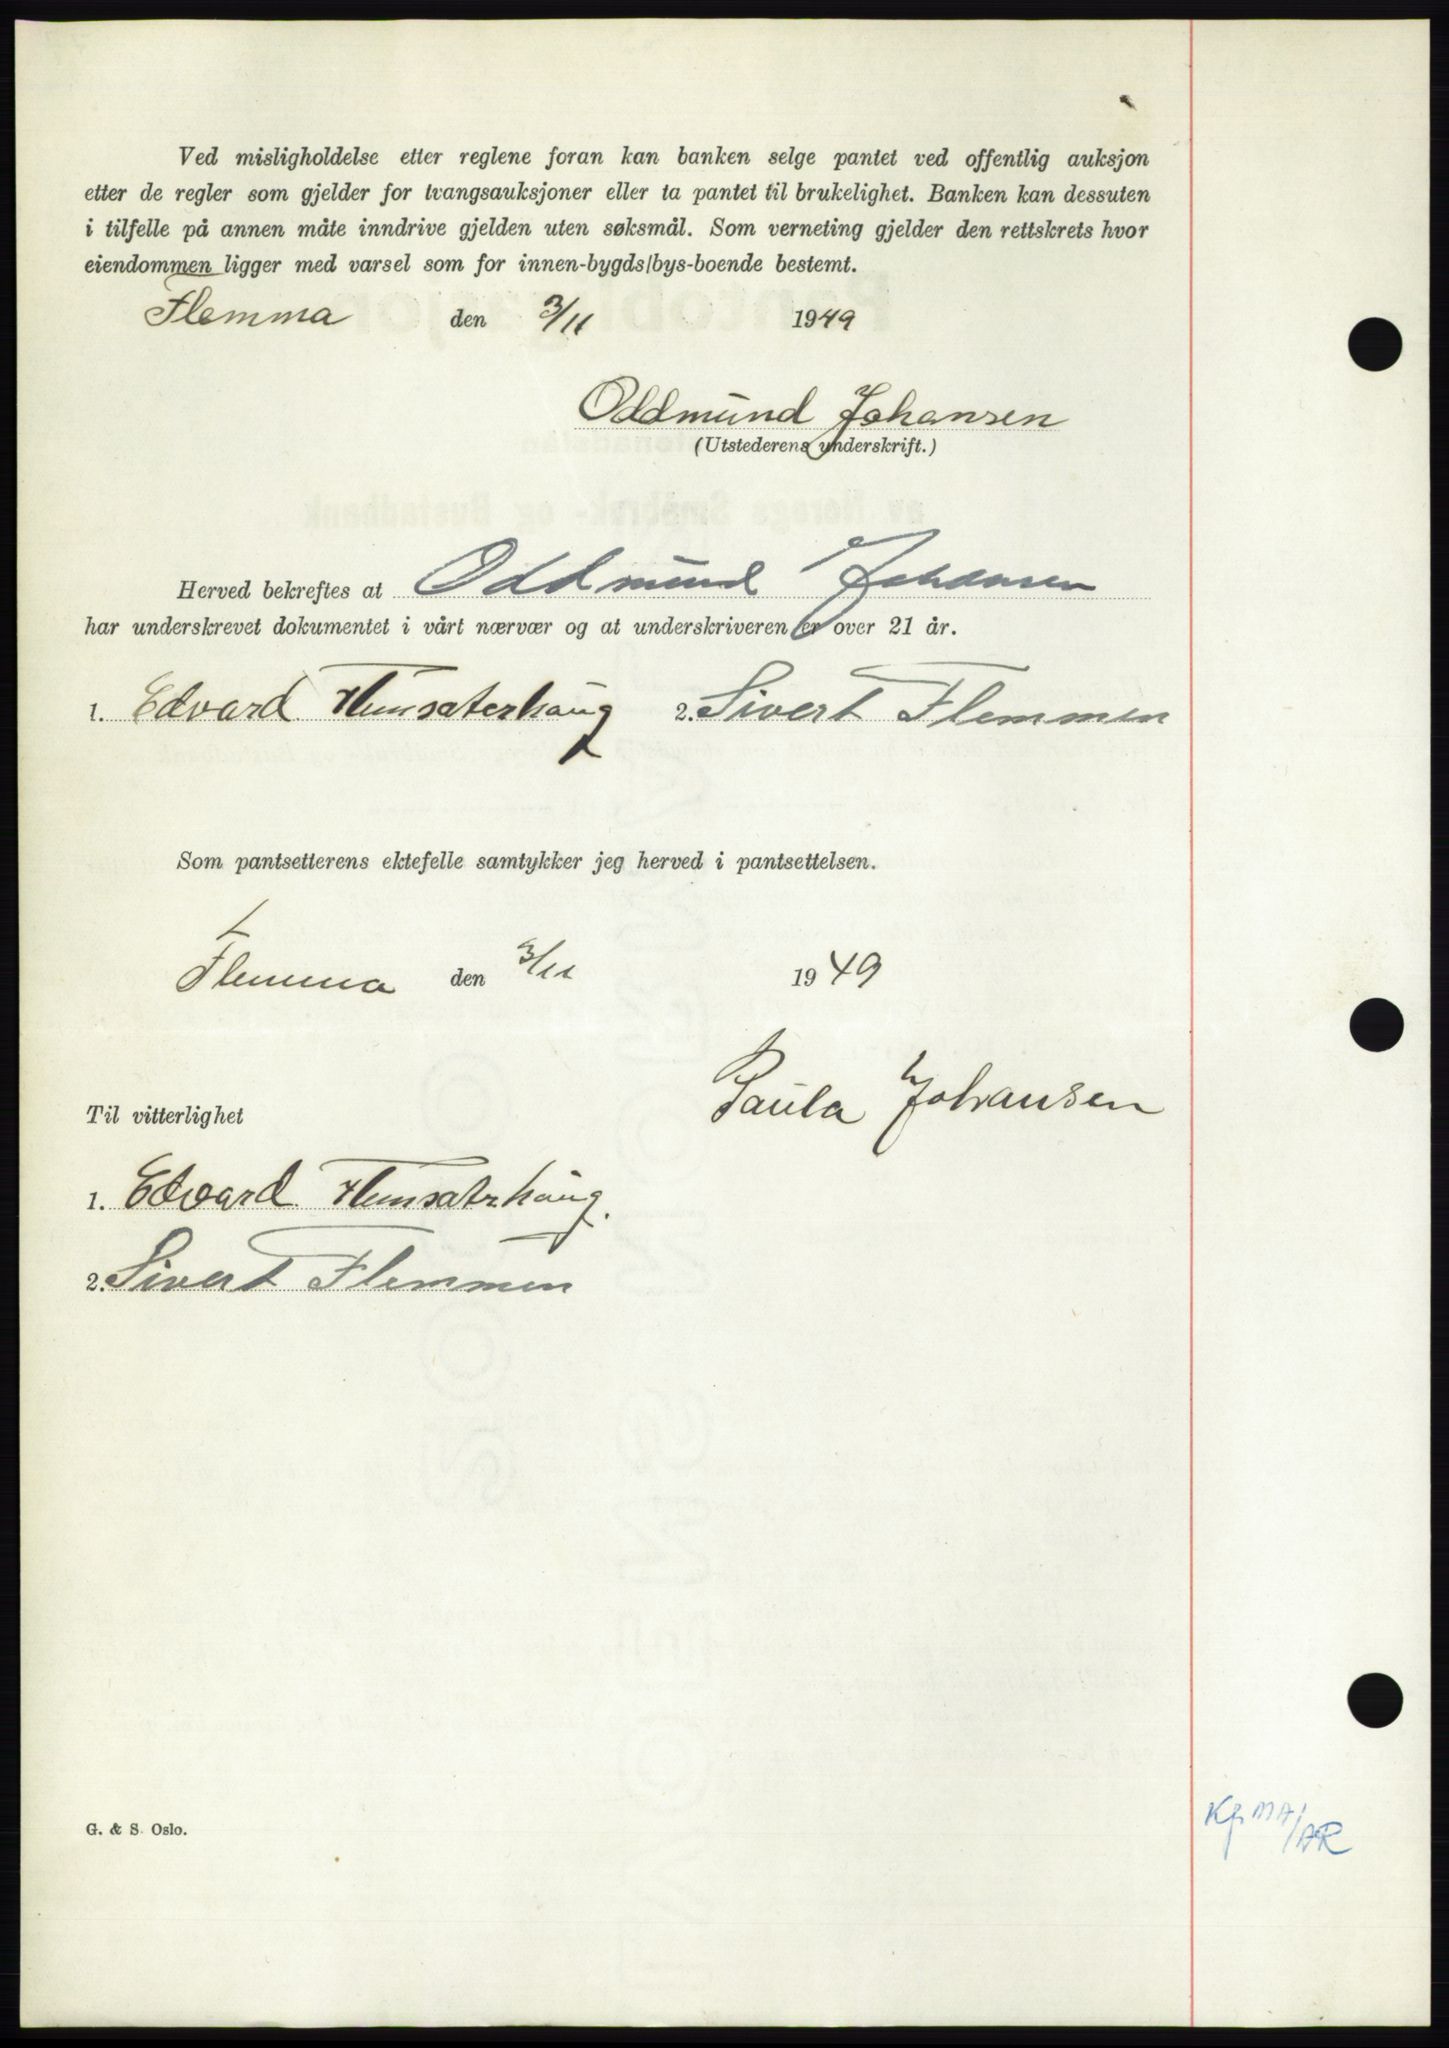 Ved misligholdelse etter reglene foran kan banken selge pantet ved offentlig auksjon
etter de regler som gjelder for tvangsauksjoner eller ta pantet til brukelighet. Banken kan dessuten
i tilfelle på annen måte inndrive gjelden uten søksmål. Som verneting gjelder den rettskrets hvor
eiendommen ligger med varsel som for innen-bygds/bys-boende bestemt.
Flemma den 3/11 1949
Oddmund Johansen
(Utstederens underskrift.)
Herved bekreftes at Oddmund Johansen
har underskrevet dokumentet i vårt nærvær og at underskriveren er over 21 år.
1. Edvard 2. Sivert Flemmen
Som pantsetterens ektefelle samtykker jeg herved i pantsettelsen.
Flemma den 3/11 1949
Paula Johansen
Til vitterlighet
1. Edvard
2. Sivert Flemmen
G. & S. Oslo.